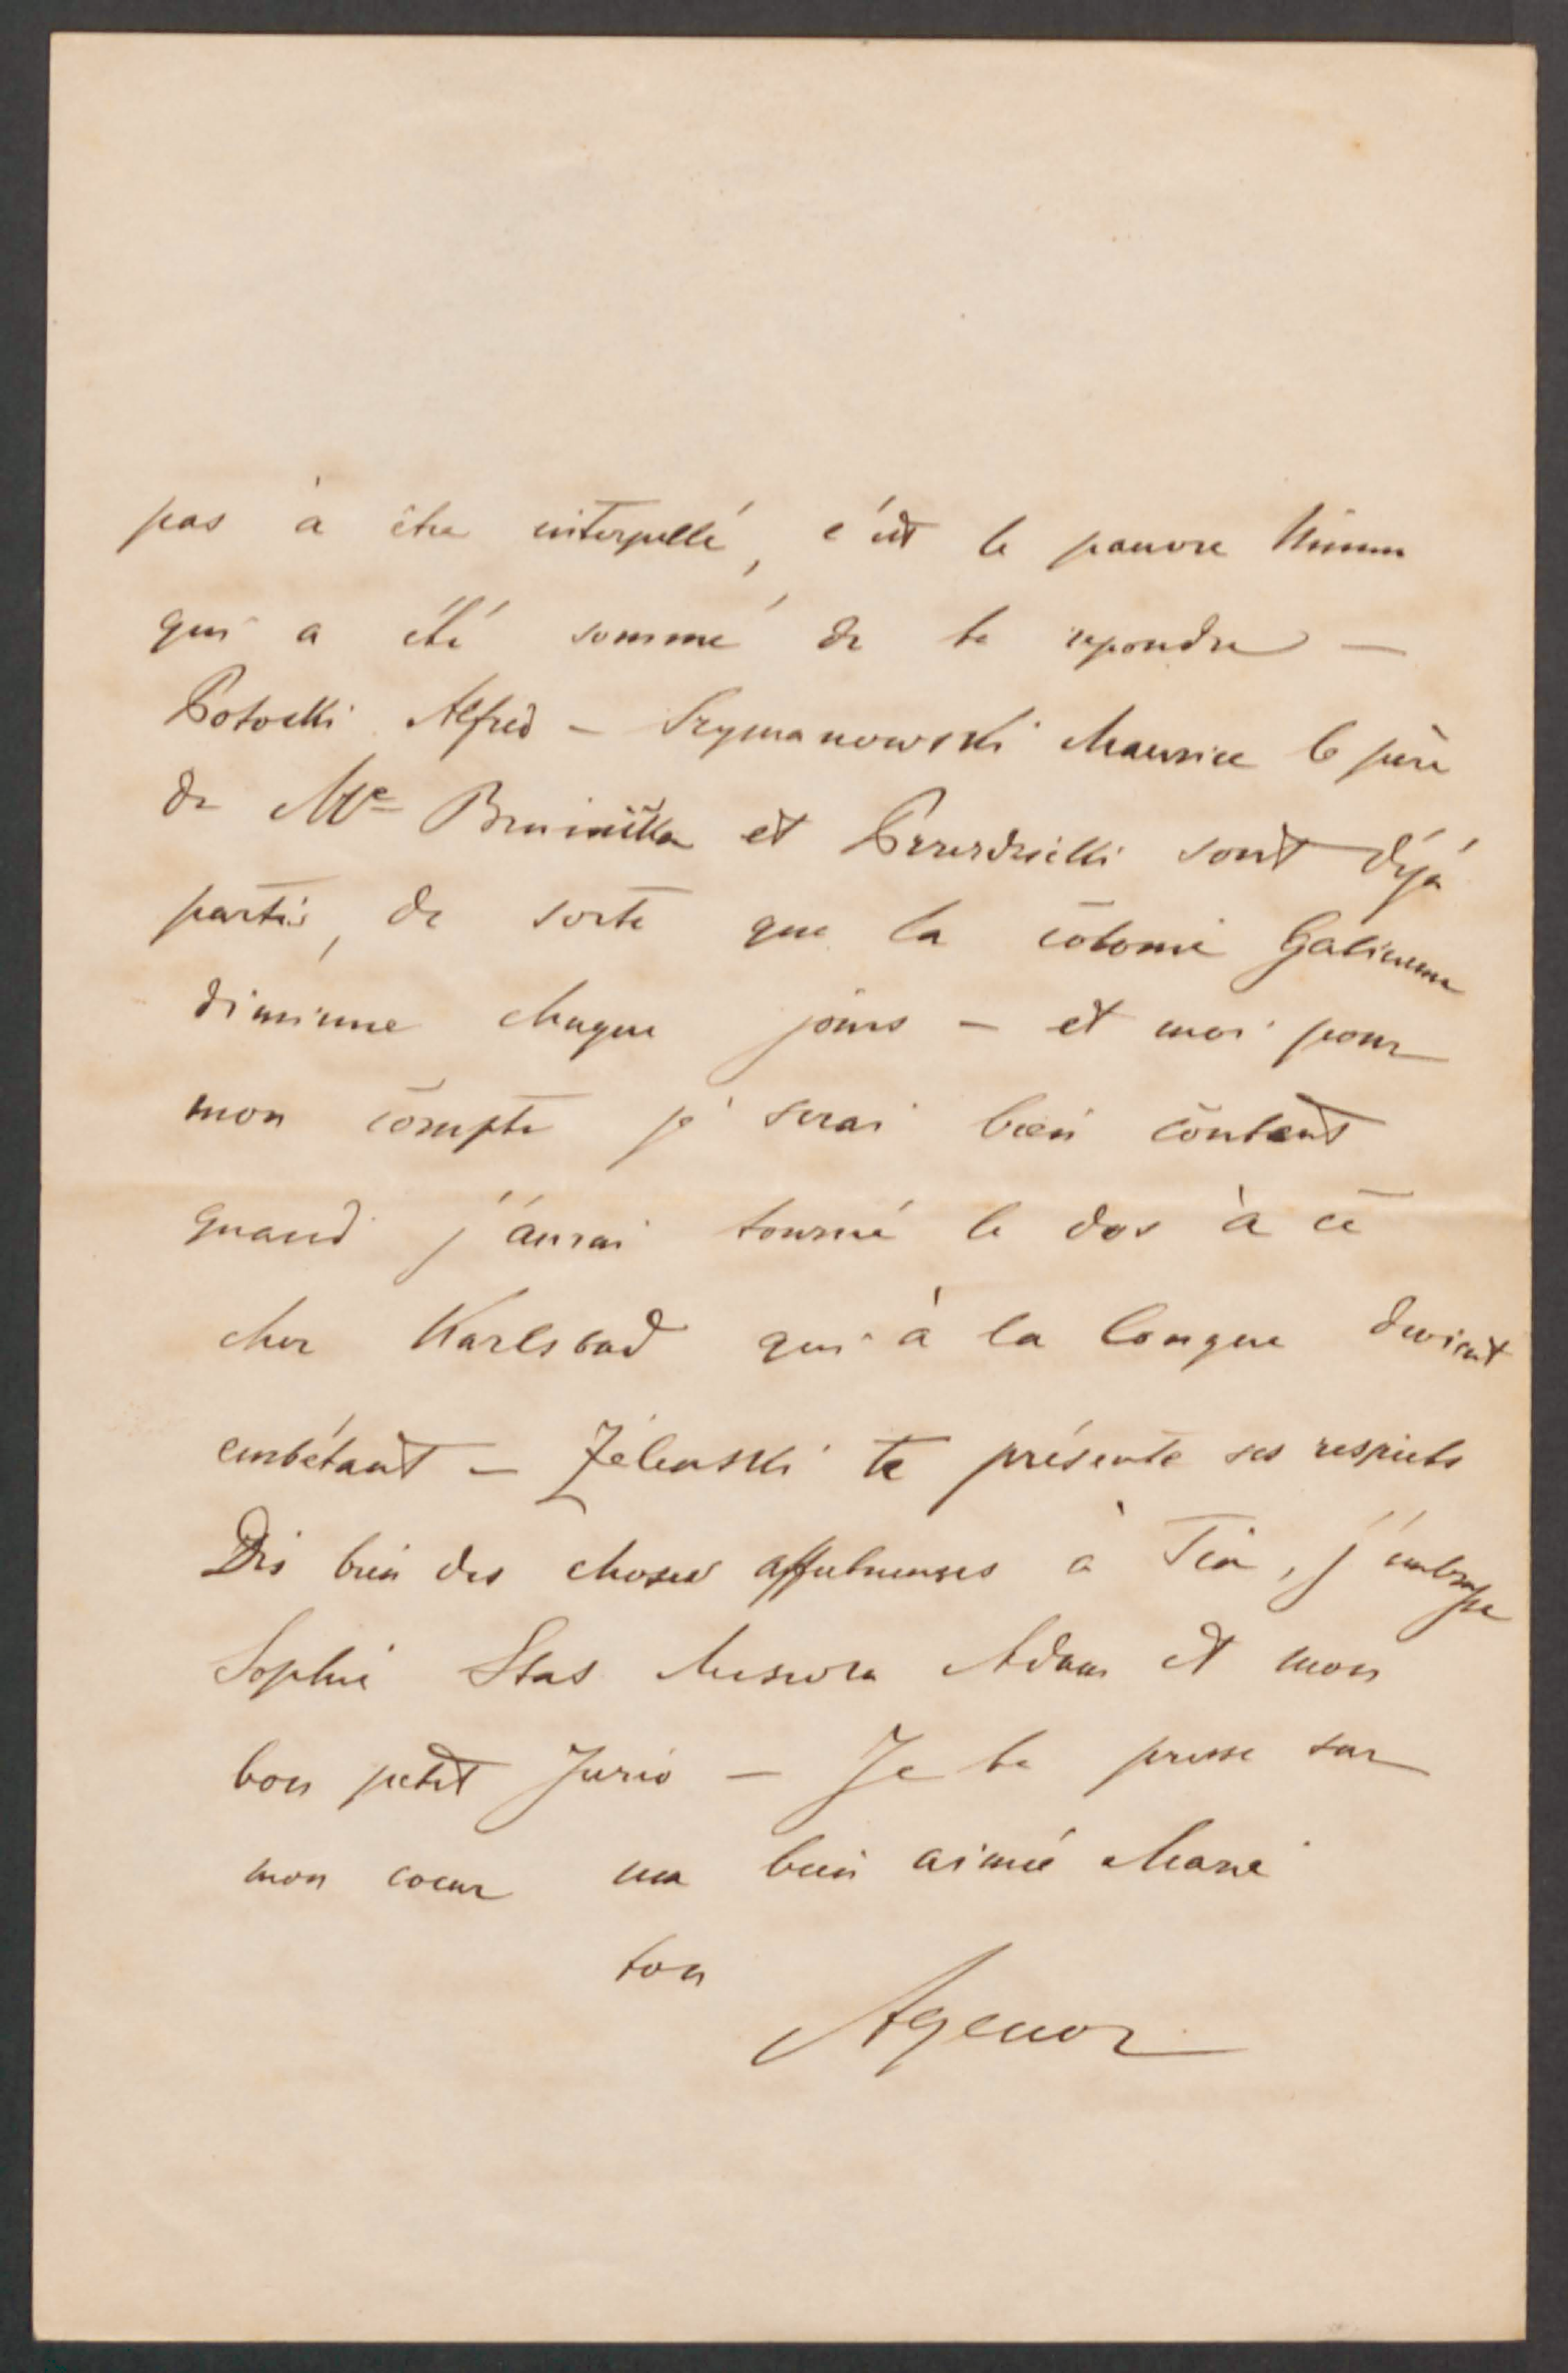 pas à être interpellé, c'est le pauvre
qui a été sommé de te repondre —
Potocki Alfred – Szymanowski Maurice le père
de Me Brunicka et Przezdziecki sont déjà
partis, de sorte que la colonie Galicienne
diminue chaque jours – et moi pour
mon compte je serai bien content
quand j'aurai tourné le dos à ce
cher Karlsbad qui à la longue devient
embétant – Zélenski te présente ses respects
Dis bien des choses affectueuses à Tia, j'embrasse
Sophie Stas Adam et mon
bon petit Juzio – Je te presse sur
mon coeur ma bien aimée Marie
ton
Agenor